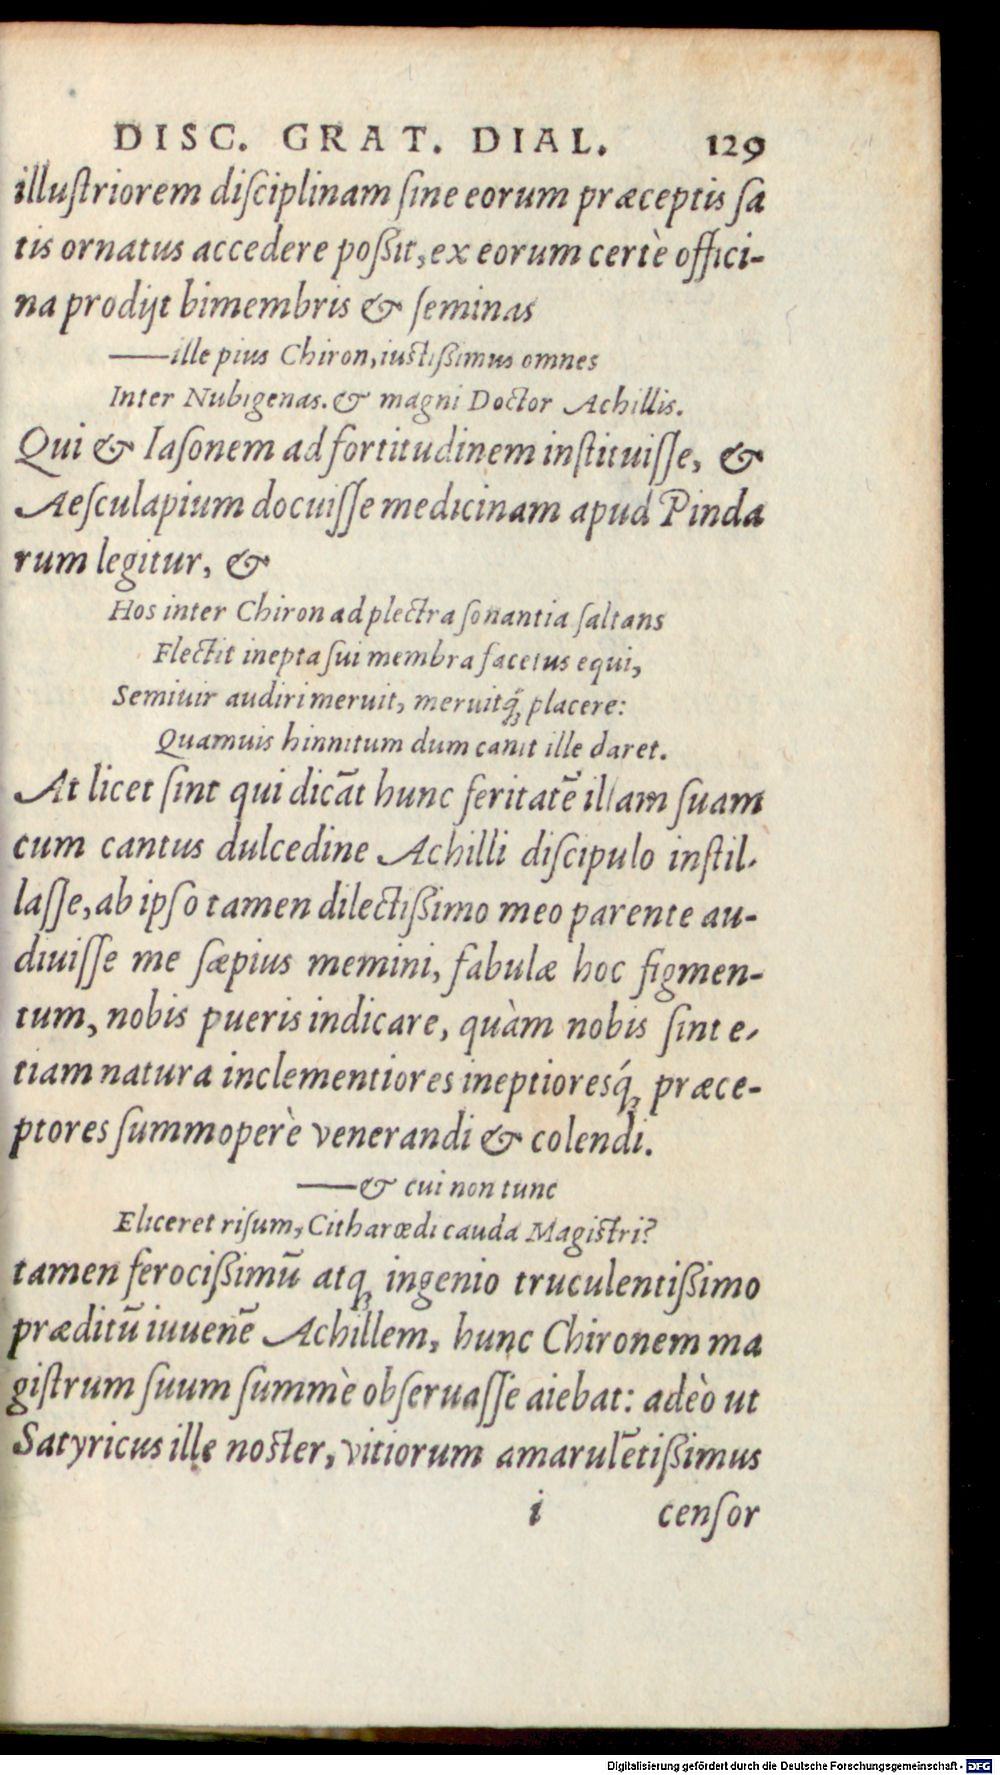 DISC. GRAT. DIAL. 129
illuſtriorem diſciplinam ſine eorum præceptis ſa
tis ornatus accedere poßit, ex eorum certè offici-
na prodijt bimembris & ſeminas
——ille pius Chiron, iuſtißimus omnes
Inter Nubigenas. & magni Doctor Achillis.
Qui & Iaſonem ad fortitudinem inſtituiſſe, &
Aeſculapium docuiſſe medicinam apud Pinda
rum legitur, &
Hos inter Chiron ad plectra ſonantia ſaltans
Flectit inepta ſui membra facetus equi,
Semiuir audiri meruit, meruitq́ꝫ placere:
Quamuis hinnitum dum canit ille daret.
At licet ſint qui dicãt hunc feritatẽ illam ſuam
cum cantus dulcedine Achilli diſcipulo inſtil-
laſſe, ab ipſo tamen dilectißimo meo parente au-
diuiſſe me ſæpius memini, fabulæ hoc figmen-
tum, nobis pueris indicare, quàm nobis ſint e-
tiam natura inclementiores ineptioresq́ꝫ præce-
ptores ſummoperè venerandi & colendi.
——& cui non tunc
Eliceret riſum, Citharœdi cauda Magiſtri?
tamen ferocißimũ atqꝫ ingenio truculentißimo
præditũ iuuenẽ Achillem, hunc Chironem ma
giſtrum ſuum ſummè obſeruaſſe aiebat: adeò ut
Satyricus ille noſter, vitiorum amarulẽtißimus
i cenſor
Digitalisierung gefördert durch die Deutsche Forschungsgemeinschaft - DFG